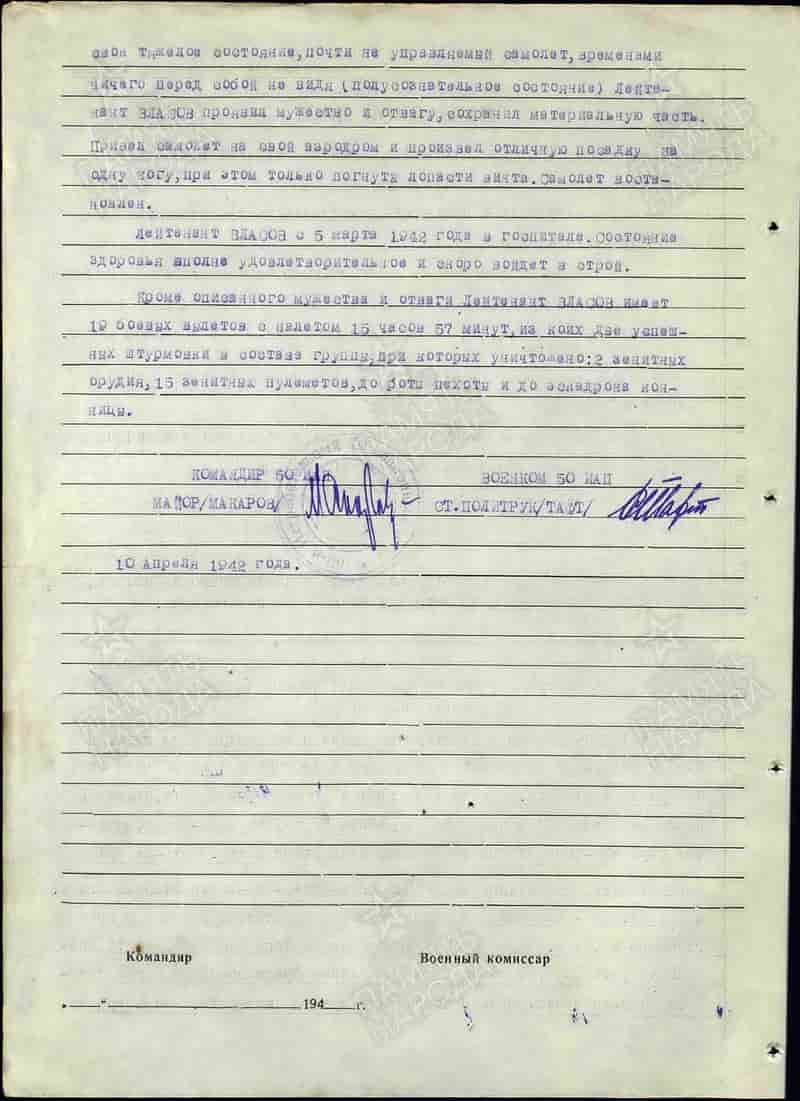 свое тяжелое состояние, почти не управляемый самолет, временами
ничего перед собой не видя (полусознательное состояние) Лейте-
нант ВЛАСОВ проявил мужество и отвагу, сохранил материальную часть.
Привел самолет на свой аэродром и произвел отличную посадку на
одну ногу, при этом только погнуты лопасти винта. Самолет восста-
новлен.
Лейтенант ВЛАСОВ с 5 марта 1942 года в госпитале. Состояние
здоровья вполне удовлетворительное и скоро войдет в строй.
Кроме описанного мужества и отваги Лейтенант ВЛАСОВ имеет
19 боевых вылетов с налетом 15 часов 57 минут, из коих две успеш-
ных штурмовки в составе группы, при которых уничтожено: 2 зенитных
орудия, 15 зенитных пулеметов, до роты пехоты и до эскадрона кон-
ницы.
КОМАНДИР 50 ИАП ВОЕНКОМ 50 ИАП
МАЙОР /МАКАРОВ/ СТ.ПОЛИТРУК /ТАФТ/
10 Апреля 1942 года.
Командир Военный комиссар
„ “ 194 г.
ПАМЯТЬ НАРОДА